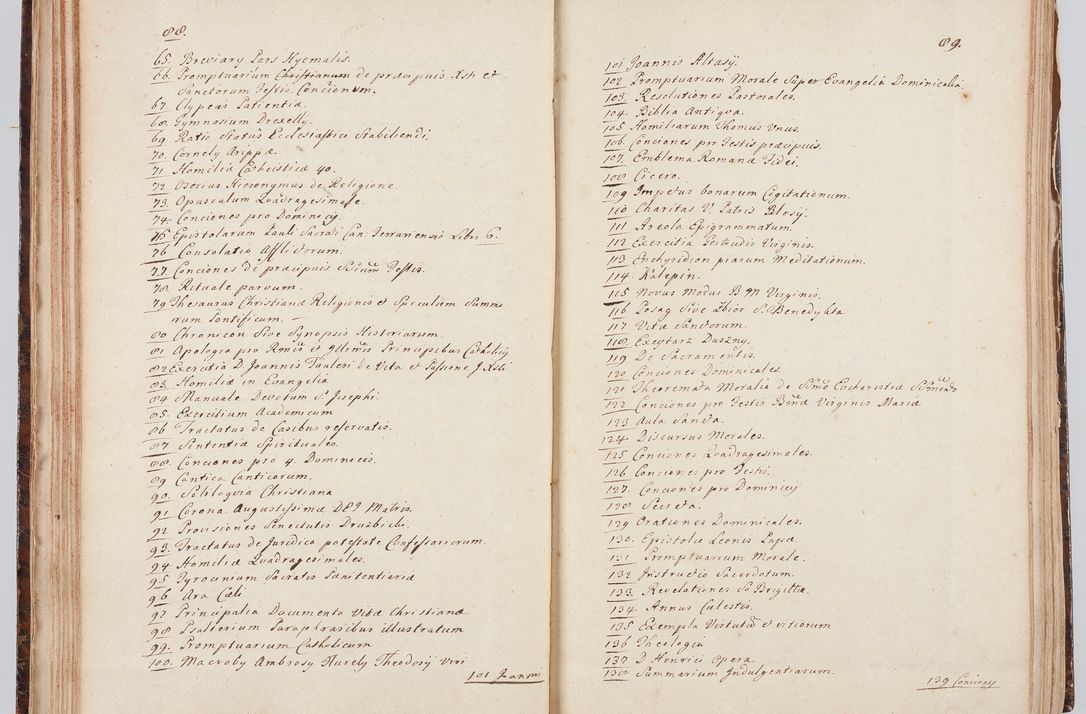 88.
65. Breviary Pars Hyemalis.
66. Promptuarium Christianum de præcipuis Xsti et
Sanctorum Festis. Concionum.
67. Clypeus Patientiæ.
68. Gymnasium Drexelly.
69 Ratio Status Ecclesiastici Stabiliendi.
70. Cornely Arippæ.
71 Homiliæ Catheisticæ 40.
72. Osorius Hieronymus de Religione.
73. Opusculum Quadragesimale.
74. Conciones pro Dominicij.
75 Epistolarum Pauli Sacrati Can. Ferrariensis Libri 6.
76 Consolatio Afflictorum.
77. Conciones de præcipuis Festis.
78. Rituale parvum.
79 Thesaurus Christianæ Religionis et Speculum Summo
rum Pontificum. —
80 Chronicon Sive Synopsis Historiarum.
81 Apologia pro Principibus Catholicij
82 Exercitia D. Joannis Tauleri de Vita et Passione J. Xsti
83. Homiliæ in Evangelia
84 Manuale Devotum S. Josephi.
85. Exercitium Academicum
86 Tractatus de Casibus reservatis.
87 Sententiæ Spirituales.
88. Conciones pro 4. Dominicis.
89 Cantica Canticorum.
90. Soliloquia Christiana
91 Corona Augustissima DEI Matris.
92 Provisiones Senectutis Druzbicki.
93. Tractatus de Juridica potestate Confessariorum.
94 Homiliæ Quadragesimales.
95 Tyrocinium Sacratis Pænitentiariæ
96 Ara Cœli
97 Principalia Documenta Vitæ Christianæ
98 Psalterium Paraphrasibus illustratum
99. Promptuarium Catholicum
100. Macroby Ambrosy Aurely Theodosij Viri
101 Joannis
89.
101 Joannis Altasij.
102 Promptuarium Morale Super Evangelia Dominicalia.
103. Resolutiones Pastorales.
104. Biblia Antiqva.
105 Homiliarum Thomus Vnus.
106. Conciones pro Festis præcipuis.
107. Emblema Romanæ Fidei.
108 Cicero.
109 Impetus bonarum Cogitationum.
110 Charitas V. Patris Blosij.
111 Areola Epigrammatum.
112 Exercitia Gertrudis Virginis.
113 Enchyridion piarum Meditationum.
114. Kalepin.
115 Novus Modus B M Virginis.
116 Posag Sive Zbior S. Benedykta
117 Vitæ Sanctorum.
118. Exeytarz Duszny.
119 De Sacramentis.
120 Conciones Dominicales.
121 Theoremata Moralia de Eucharistiæ
122 Conciones pro Festis Virginis Mariæ
123 Aula Sancta.
124. Discursus Morales.
125 Conciones Quadragesimales.
126 Conciones pro Festis.
127. Conciones pro Dominicij
128 Secreta.
129 Orationes Dominicales.
130. Epistolæ Leonis Papæ.
131 Promptuarium Morale.
132 Instructio Sacerdotum.
133 Revelationes S. Brigittæ.
134. Annus Cœlestis.
135 Exempla Virtutum et vitiorum
136 Theologia
137 D. Henrici Opera.
138 Summarium Indulgentiarum.
139